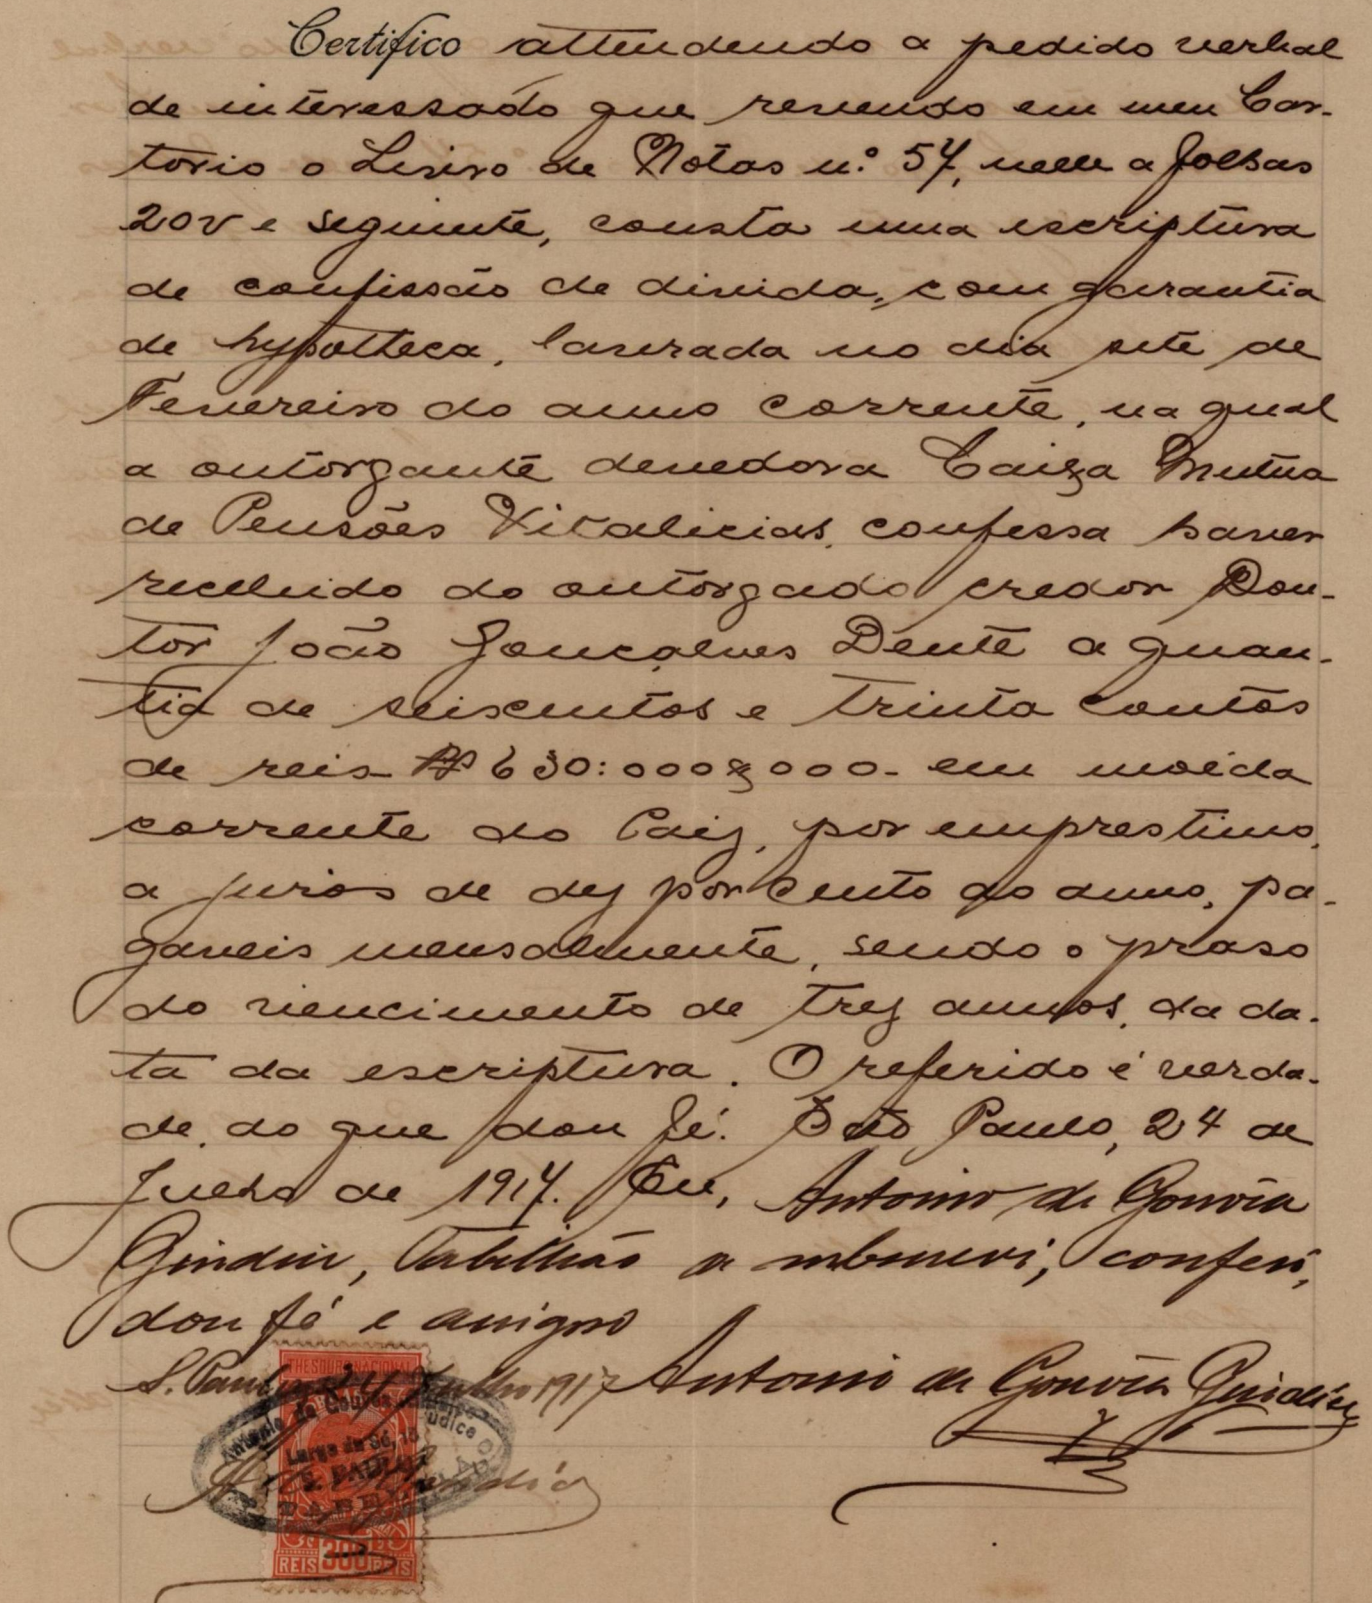 Certifico attendendo a pedido verbal
de interessado que revendo em meu Car-
torio o Livro de Notas n.º 57, nelle a folhas
20v e seguinte, consta uma escriptura
de confissão de divida, com garantia
de hypotteca, lavrada no dia sete de
Fevereiro do anno corrente, na qual
a outorgante devedora Caixa Mutua
de Pensões Vitalicias, confessa haver
recebido do outorgado credor Dou-
tor João Gonçalves Dente a quan-
tia de seiscentos e trinta contos
de reis Rs 630:000$000- em moeda
corrente do Paiz, por emprestimo,
a juros de dez por cento ao anno, pa-
gaveis mensalmente, sendo o praso
do vencimento de trez annos, da da-
ta da escriptura. O referido é verda-
de, do que dou fé. São Paulo, 24 de
Julho de 1917. Eu, Antonio de Gouvêa
Giudice, Tabellião a subscrevi, conferi,
dou fé e assigno
S. Paulo, 24 Julho 1917 Antonio de Gouvêa Giudice
THESOURO NACIONAL
Antonio de Gouvêa Giudice
Largo da Sé, 15
S. PAULO
REIS 300 REIS